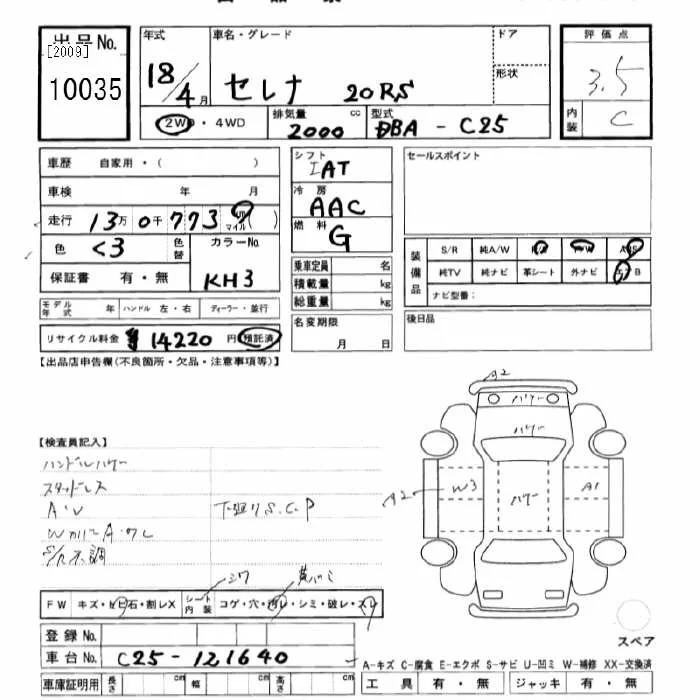 出品No.
[2009]
10035
年式
18/4月
車名・グレード
セレナ 20RS
ドア
形状
2WD・4WD
排気量
2000 cc
型式
DBA - C25
評価点
3.5
内装
C
車歴 自家用・( )
車検 年 月
走行 13万0千773 km マイル ( )
色 くろ 色替
カラーNo
KH3
保証書 有・無
モデル年式 年 ハンドル 左・右 ディーラー・並行
リサイクル料金 ¥14220 預託済
シフト
IAT
冷房
AAC
燃料
G
乗車定員 名
積載量 kg
総重量 kg
名変期限
月 日
セールスポイント
装備品
S/R 純A/W P/S P/W ABS
純TV 純ナビ 革シート 外ナビ エアB
ナビ型番:
後日品
【出品店申告欄(不良箇所・欠品・注意事項等)】
【検査員記入】
ハンドルハゲ
スタッドレス
A・U
下廻りS.C.P
不調
シワ
FW キズ・ヒビ石・割レX シート内装 コゲ・穴・汚レ・シミ・破レ・スレ
登録No.
車台No. C25-121640
車庫証明用 長さ cm 幅 cm 高さ cm
A2
パワー
パワー
A2
W3
パワー
A1
スペア
A-キズ C-腐食 E-エクボ S-サビ U-凹ミ W-補修 XX-交換済
工具 有・無 ジャッキ 有・無